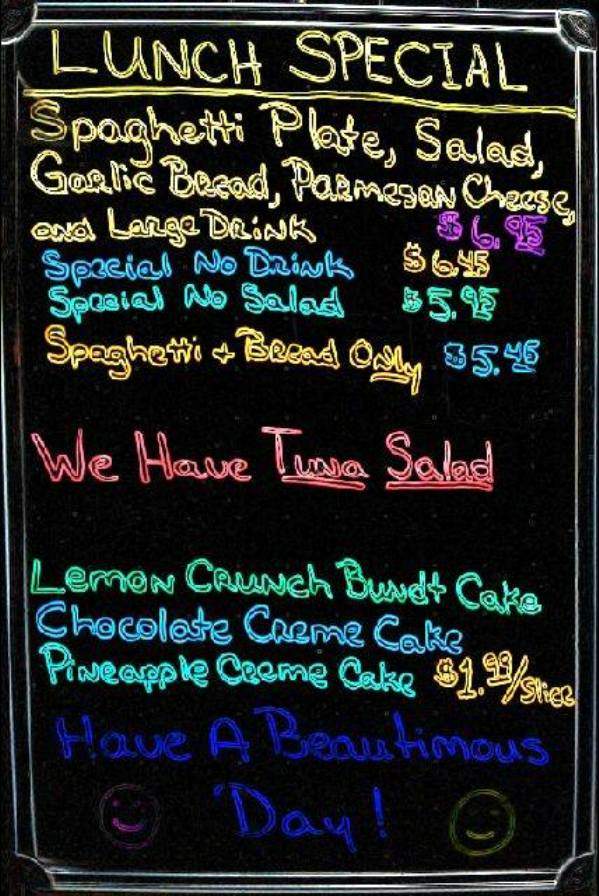 LUNCH SPECIAL
Spaghetti Plate, Salad,
Garlic Bread, Parmesan Cheese,
and Large Drink $6.95
Special No Drink $6.45
Special No Salad $5.95
Spaghetti + Bread Only $5.45
We Have Tuna Salad
Lemon Crunch Bundt Cake
Chocolate Creme Cake
Pineapple Creme Cake $1.99/Slice
Have A Beautimous
Day!